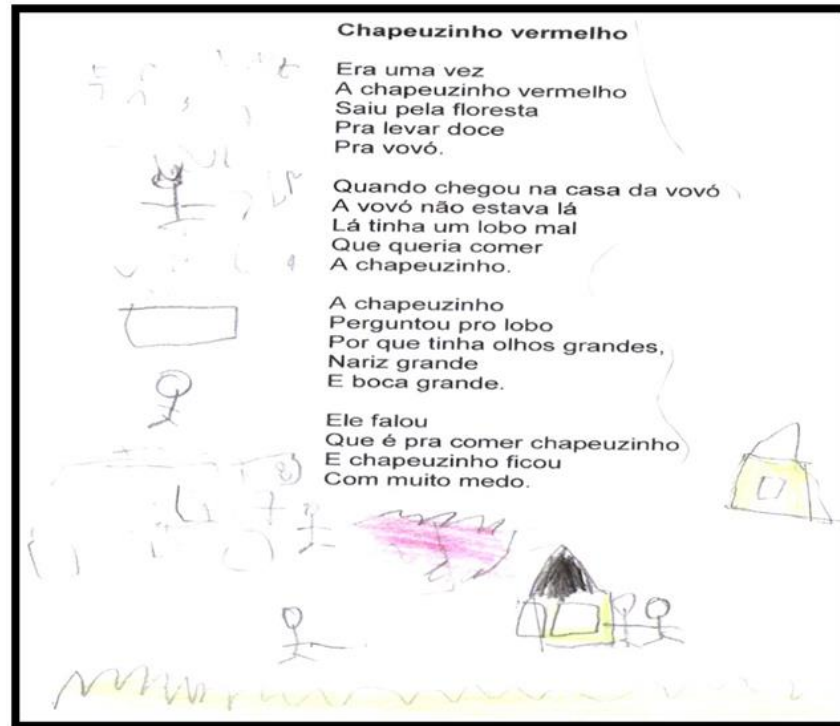 Chapeuzinho vermelho
Era uma vez
A chapeuzinho vermelho
Saiu pela floresta
Pra levar doce
Pra vovó.
Quando chegou na casa da vovó
A vovó não estava lá
Lá tinha um lobo mal
Que queria comer
A chapeuzinho.
A chapeuzinho
Perguntou pro lobo
Por que tinha olhos grandes,
Nariz grande
E boca grande.
Ele falou
Que é pra comer chapeuzinho
E chapeuzinho ficou
Com muito medo.